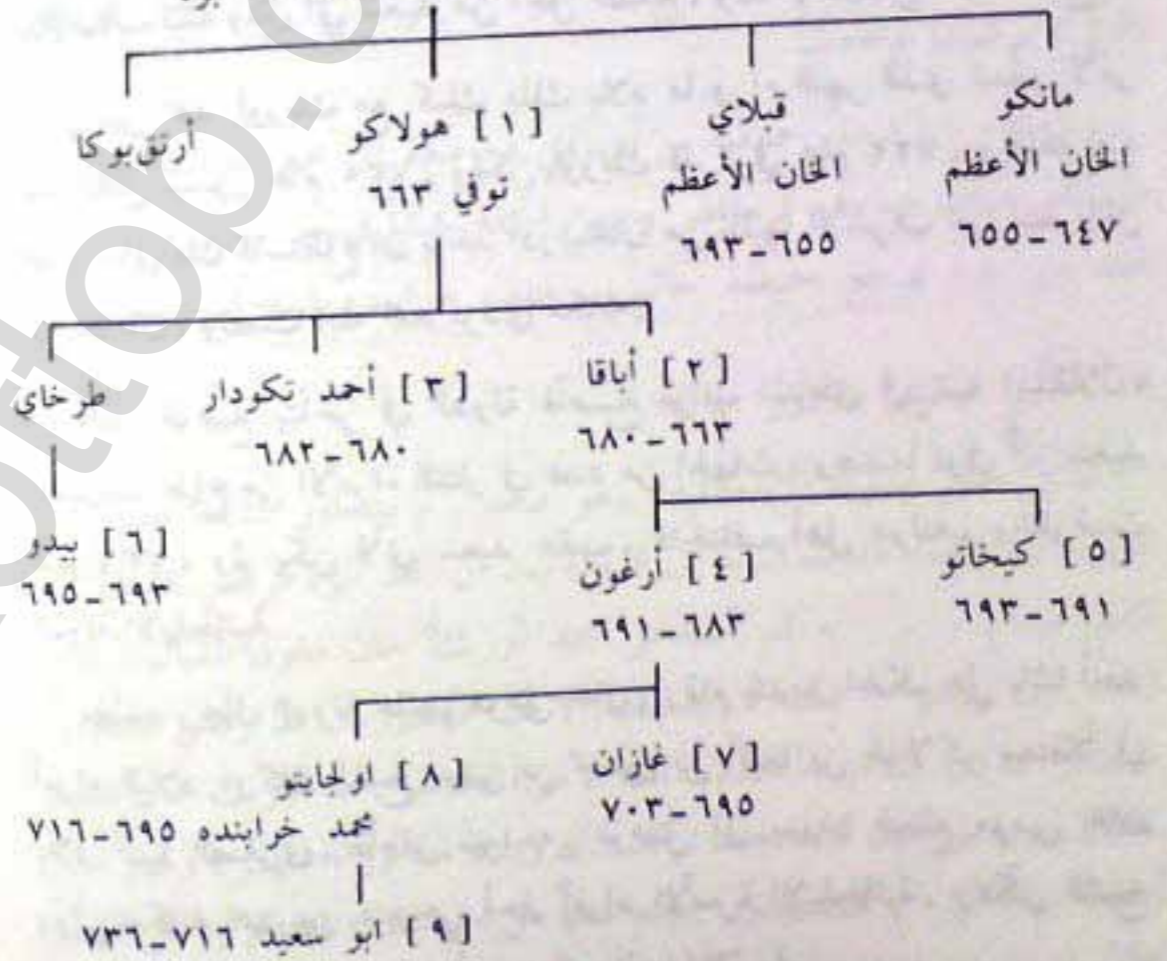 مانكو
الخان الأعظم
٦٤٧-٦٥٥
قبلاي
الخان الأعظم
٦٥٥-٦٩٣
[ ١ ] هولاكو
توفي ٦٦٣
أرتق بوكا
[ ٢ ] أباقا
٦٦٣-٦٨٠
[ ٣ ] أحمد تكودار
٦٨٠-٦٨٢
طرخاي
[ ٥ ] كيخاتو
٦٩١-٦٩٣
[ ٤ ] أرغون
٦٨٣-٦٩١
[ ٦ ] بيدو
٦٩٣-٦٩٥
[ ٧ ] غازان
٦٩٥-٧٠٣
[ ٨ ] اولجايتو
محمد خرابنده ٦٩٥-٧١٦
[ ٩ ] ابو سعيد ٧١٦-٧٣٦